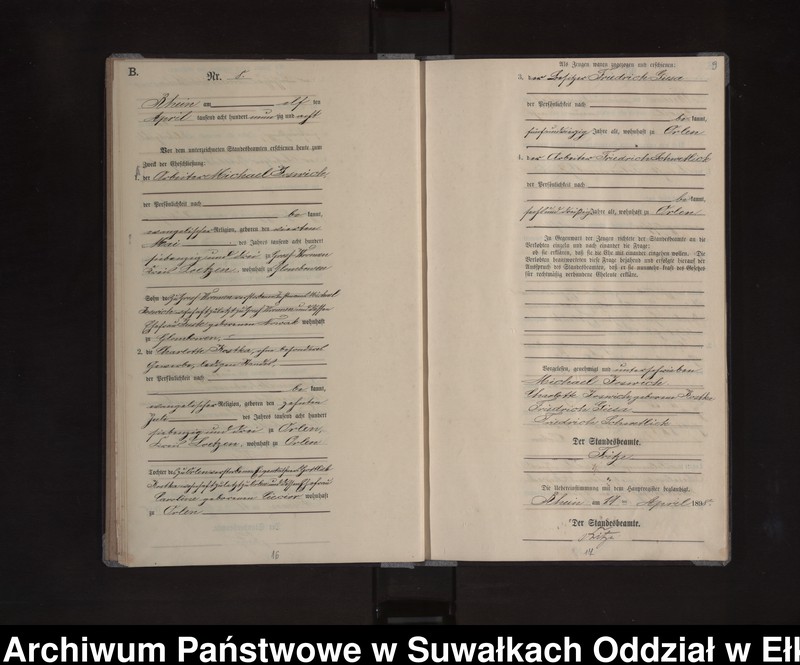 B.
Nr. 8.
Rhein am elf ten
April tausend acht hundert neunzig und acht
Vor dem unterzeichneten Standesbeamten erschienen heute zum
Zweck der Eheschließung:
1. der Arbeiter Michael Joswich
der Persönlichkeit nach
be kannt,
evangelischer Religion, geboren den vierten
Mai des Jahres tausend acht hundert
siebenzig und drei zu Groß
Kreis Loetzen, wohnhaft zu
Sohn des zu Groß verstorbenen Michael
Joswich wohnhaft zuletzt zu Groß und dessen
Ehefrau geborenen Nowak wohnhaft
zu
2. die Charlotte Kostka, ohne besonderes
Gewerbe, ledigen Standes,
der Persönlichkeit nach
be kannt,
evangelischer Religion, geboren den zehnten
Juli des Jahres tausend acht hundert
siebenzig und drei zu Orlen,
Kreis Loetzen, wohnhaft zu Orlen
Tochter des zu Orlen verstorbenen Gottlieb
Kostka wohnhaft zuletzt zu Orlen und dessen Ehefrau
Caroline geborenen wohnhaft
zu Orlen
16
Als Zeugen waren zugezogen und erschienen:
9
3. der Besitzer Friedrich Giesa
der Persönlichkeit nach
be kannt,
fünfundvierzig Jahre alt, wohnhaft zu Orlen
4. der Arbeiter Friedrich Schwetlick
der Persönlichkeit nach
be kannt,
sechs und dreißig Jahre alt, wohnhaft zu Orlen
In Gegenwart der Zeugen richtete der Standesbeamte an die
Verlobten einzeln und nach einander die Frage:
ob sie erklären, daß sie die Ehe mit einander eingehen wollen. Die
Verlobten beantworteten diese Frage bejahend und erfolgte hierauf der
Ausspruch des Standesbeamten, daß er sie nunmehr kraft des Gesetzes
für rechtmäßig verbundene Eheleute erkläre.
Vorgelesen, genehmigt und unterschrieben
Michael Joswich
Charlotte Joswich, geborene Kostka
Friedrich Giesa
Friedrich Schwetlick
Der Standesbeamte.
Fritze
Die Uebereinstimmung mit dem Hauptregister beglaubigt.
Rhein am 11 ten April 1898
Der Standesbeamte.
Fritze
Archiwum Państwowe w Suwałkach Oddział w Ełk